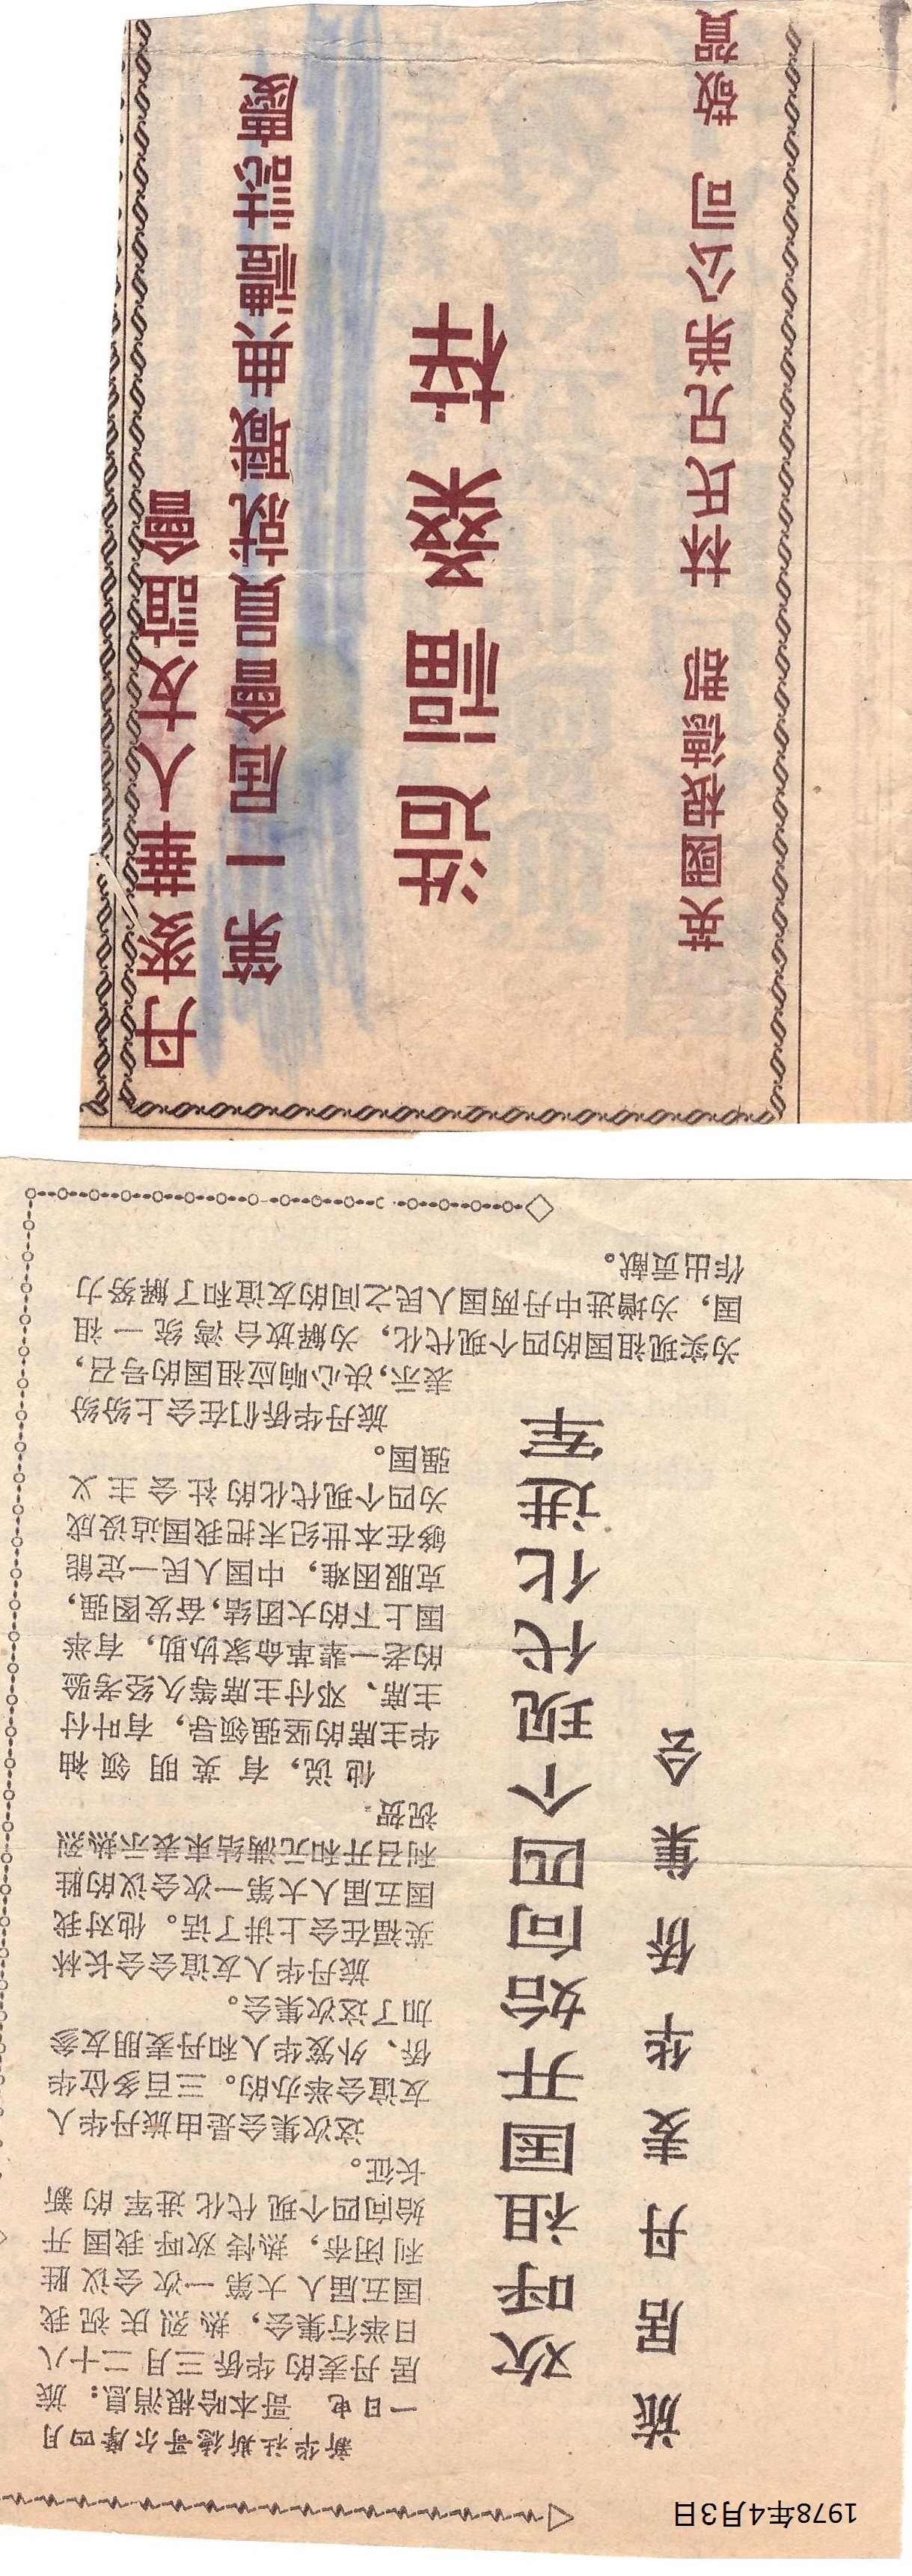 1978年4月3日
旅居丹麦华侨集会
欢呼祖国开始向四个现代化进军
新华社斯德哥尔摩四月
一日电 哥本哈根消息：旅
居丹麦的华侨三月二十八
日举行集会，热烈庆祝我
国五届人大第一次会议胜
利闭幕，热情欢呼我国开
始向四个现代化进军的新
长征。
这次集会是由旅丹华人
友谊会举办的。三百多位华
侨、外籍华人和丹麦朋友参
加了这次集会。
旅丹华人友谊会会长林
英福在会上讲了话。他对我
国五届人大第一次会议的胜
利召开和完满结束表示热烈
祝贺。
他说，有英明领袖
华主席的坚强领导，有叶付
主席、邓付主席等久经考验
的老一辈革命家协助，有举
国上下的大团结，奋发图强，
克服困难，中国人民一定能
够在本世纪末把我国建设成
为四个现代化的社会主义
强国。
旅丹华侨们在会上纷纷
表示，决心响应祖国的号召，
为实现祖国的四个现代化，为解放台湾统一祖
国，为增进中丹两国人民之间的友谊和了解努力
作出贡献。
丹麥華人友誼會
第一屆會員就職典禮誌慶
造福桑梓
英國 林氏兄弟公司 敬賀